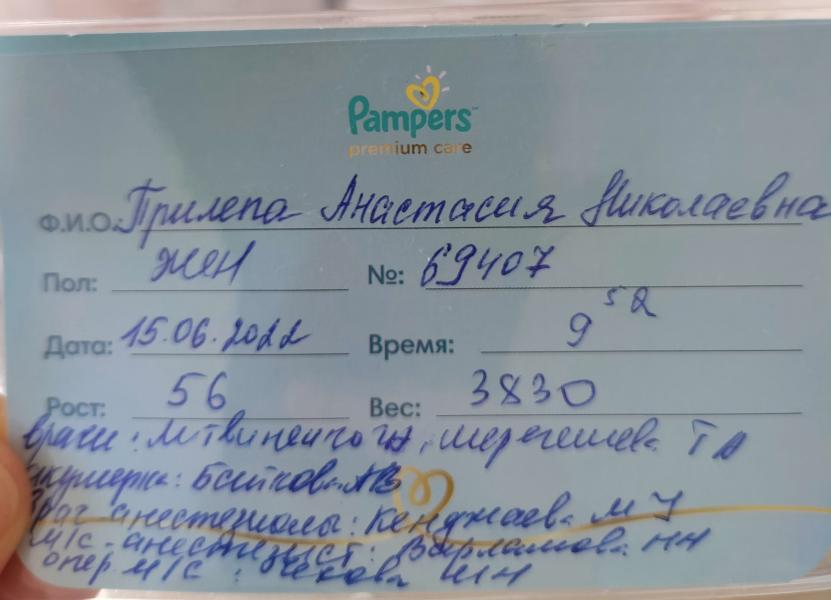 Pampers
premium care
Ф.И.О. Прилепа Анастасия Николаевна
Пол: жен №: 69407
Дата: 15.06.2022 Время: 9 52
Рост: 56 Вес: 3830
врачи: Литвиненко ГА, ТА
акушерка: АВ
Врач анестезиологи: Кенджаева М У
м/с-анестезист: Варламова НН
опер м/с: Чехова